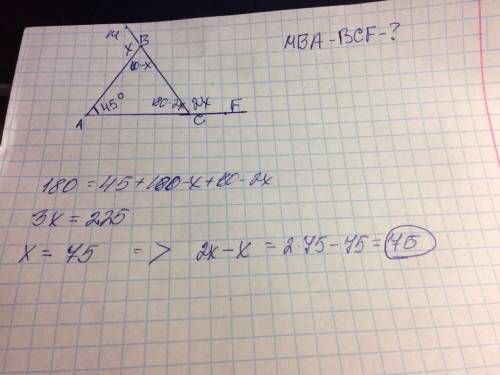 M
B
MBA - BCF - ?
x
180-x
45°
180-2x
2x
F
A
C
180 = 45 + 180 - x + 180 - 2x
3x = 225
x = 75 => 2x - x = 2·75 - 75 = 75